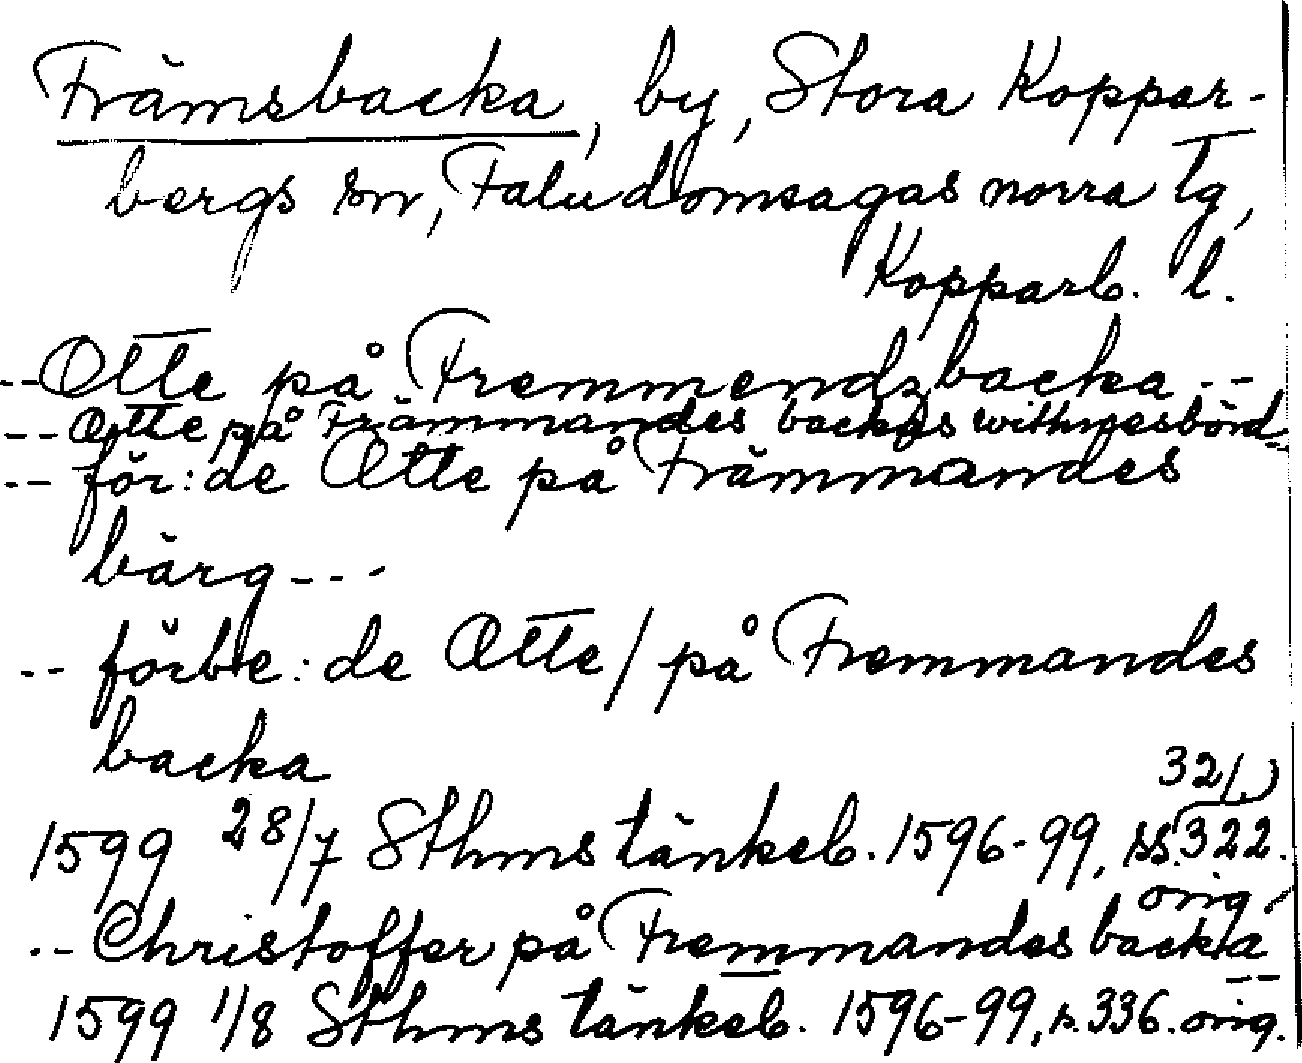 Främsbacka, by, Stora Koppar-
bergs sn, Faludomsagas norra tg,
Kopparb. l.
-- Otte på Fremmendzbacka --
-- Otte på Främmandes backas withnesbörd --
-- för: de Otte på Främmandes
bärg ---
-- förbe: de Otte / på Fremmandes
backa
321,
1599 28/7 Sthms tänkeb. 1596-99, ss. 322.
orig.
-- Christoffer på Fremmandes backa --
1599 1/8 Sthms tänkeb. 1596-99, s. 336. orig.